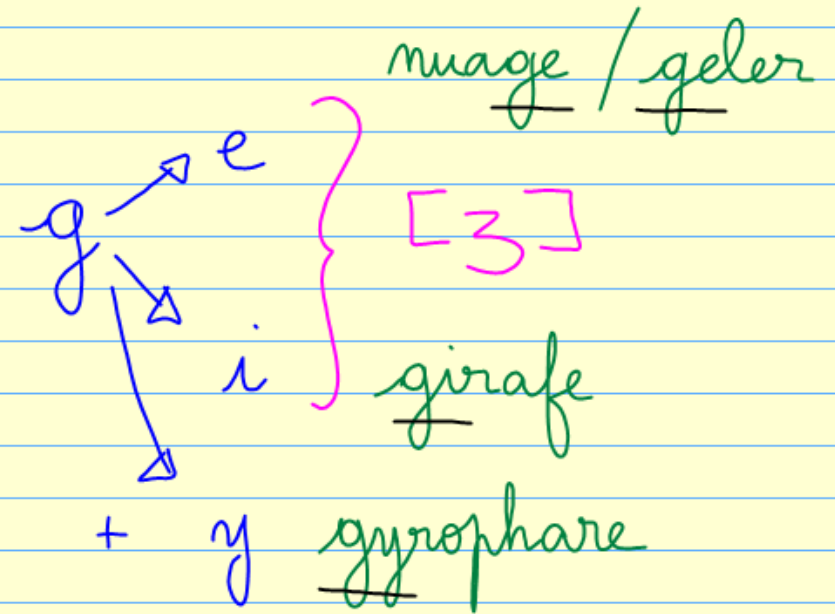 nuage / geler
e
g
[ʒ]
i
girafe
+ y gyrophare